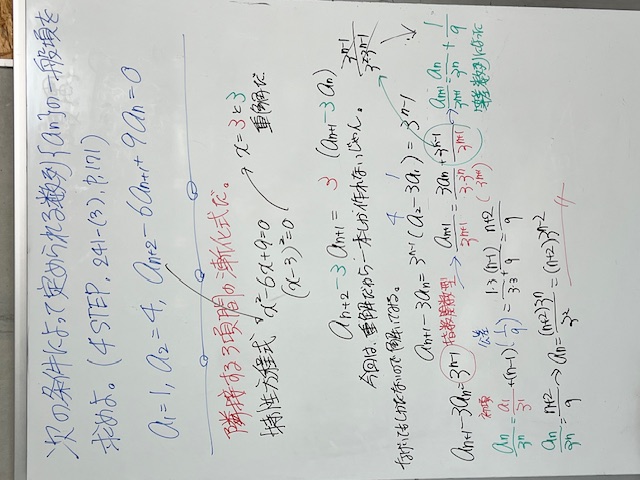 次の条件によって定められる数列{an}の一般項を
求めよ。(4STEP, 241-(3), P,171)
a1=1, a2=4, an+2-6an+1+9an=0
隣接する3項間の漸化式だ。
特性方程式 x²-6x+9=0
(x-3)²=0
x=3と3
重解だ
an+2-3an+1=3(an+1-3an)
今回は、重解だから一本しか作れないじゃん。
an+1-3an=3^n-1(a2-3a1)=3^n-1
4 1
3^n-1/3²×3^n-1
an+1-3an=3^n-1
指数関数型
an+1/3^n+1=3an+3^n-1/3^n+1
(3・3^n)
(3^n+1)
an+1/3^n+1=an/3^n+1/9
等差数列になった
初項 公差
an/3^n=a1/3^1+(n-1)(1/9)=1・3/3・3+(n-1)/9=n+2/9
an/3^n=n+2/9→an=(n+2)3^n/3²=(n+2)3^n-2